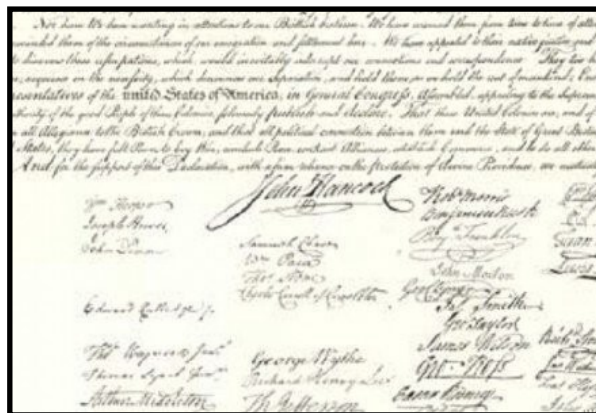 Nor have We been wanting in attentions to our British brethren. We have warned them from time to time of
reminded them of the circumstances of our emigration and settlement here. We have appealed to their native justice and
to disavow these usurpations, which, would inevitably interrupt our connections and correspondence. They too
acquiesce in the necessity, which denounces our Separation, and hold them, as we hold the rest of mankind,
of the united States of America, in General Congress, Assembled, appealing to the Supreme
of the good People of these Colonies, solemnly publish and declare, That these United Colonies are, and of
all Allegiance to the British Crown, and that all political connection between them and the State of Great
States, they have full Power to levy War, conclude Peace, contract Alliances, establish Commerce, and to do all other
And for the support of this Declaration, with a firm reliance on the protection of divine Providence, we
John Hancock
Wm Hooper
Joseph Hewes
John Penn
Edward Rutledge
Thos Heyward Junr
Thomas Lynch Junr
Arthur Middleton
Samuel Chase
Wm Paca
Thos Stone
Charles Carroll of Carrollton
George Wythe
Richard Henry Lee
Th Jefferson
Robt Morris
Benjamin Rush
Benj Franklin
John Morton
Geo Clymer
Jas Smith
Geo Taylor
James Wilson
Geo Ross
Caesar Rodney